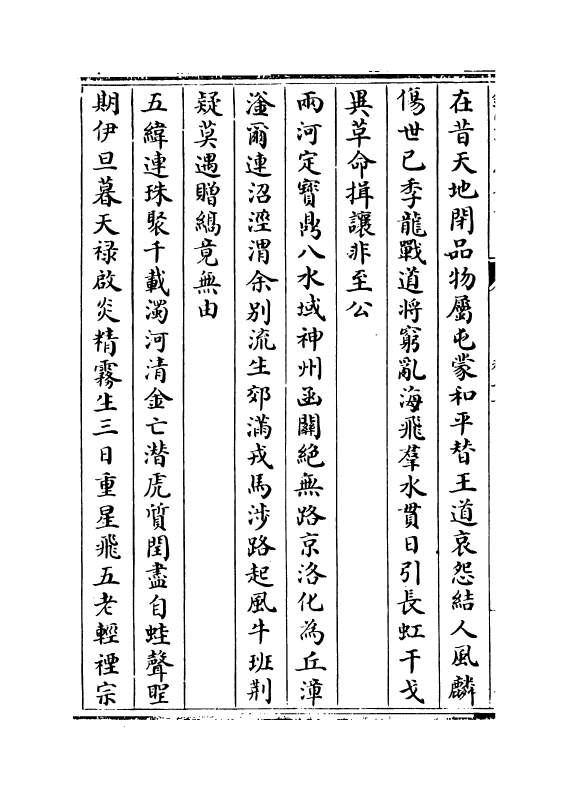 在昔天地閉品物屬屯蒙和平替王道哀怨結人風麟
傷世已季龍戰道將窮亂海飛羣水貫日引長虹干戈
異革命揖讓非至公
兩河定寳鼎八水域神州函關絶無路京洛化為丘漳
滏爾連沼涇渭余别流生郊滿戎馬涉路起風牛班荆
疑莫遇贈縞竟無由
五緯連珠聚千載濁河清金亡潜虎質閏盡自蛙聲聖
期伊旦暮天禄啟炎精霧生三日重星飛五老輕禋宗